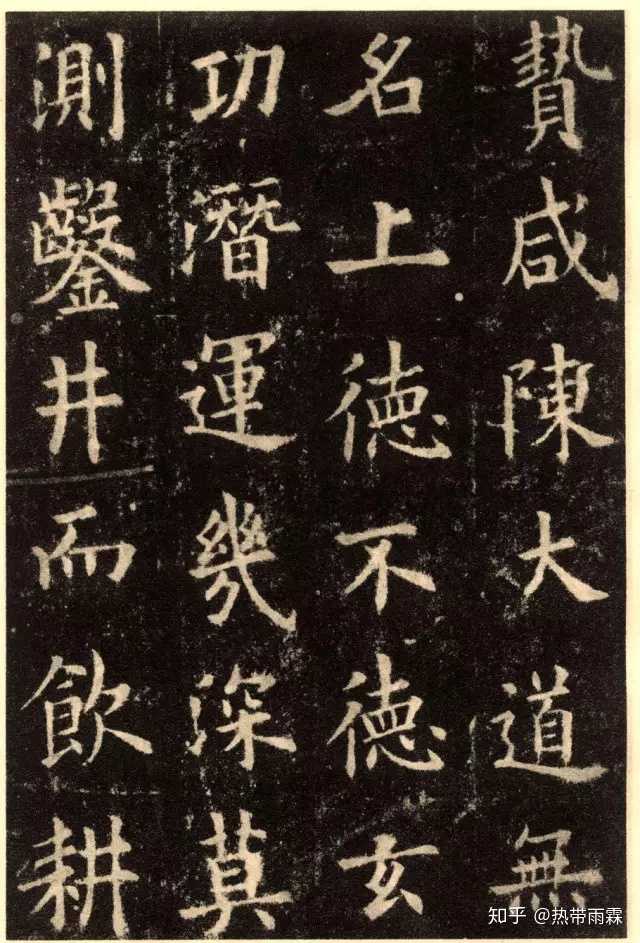 贄咸陳大道無
名上徳不徳玄
功潛運幾深莫
測鑿井而飲耕
知乎 @热带雨霖